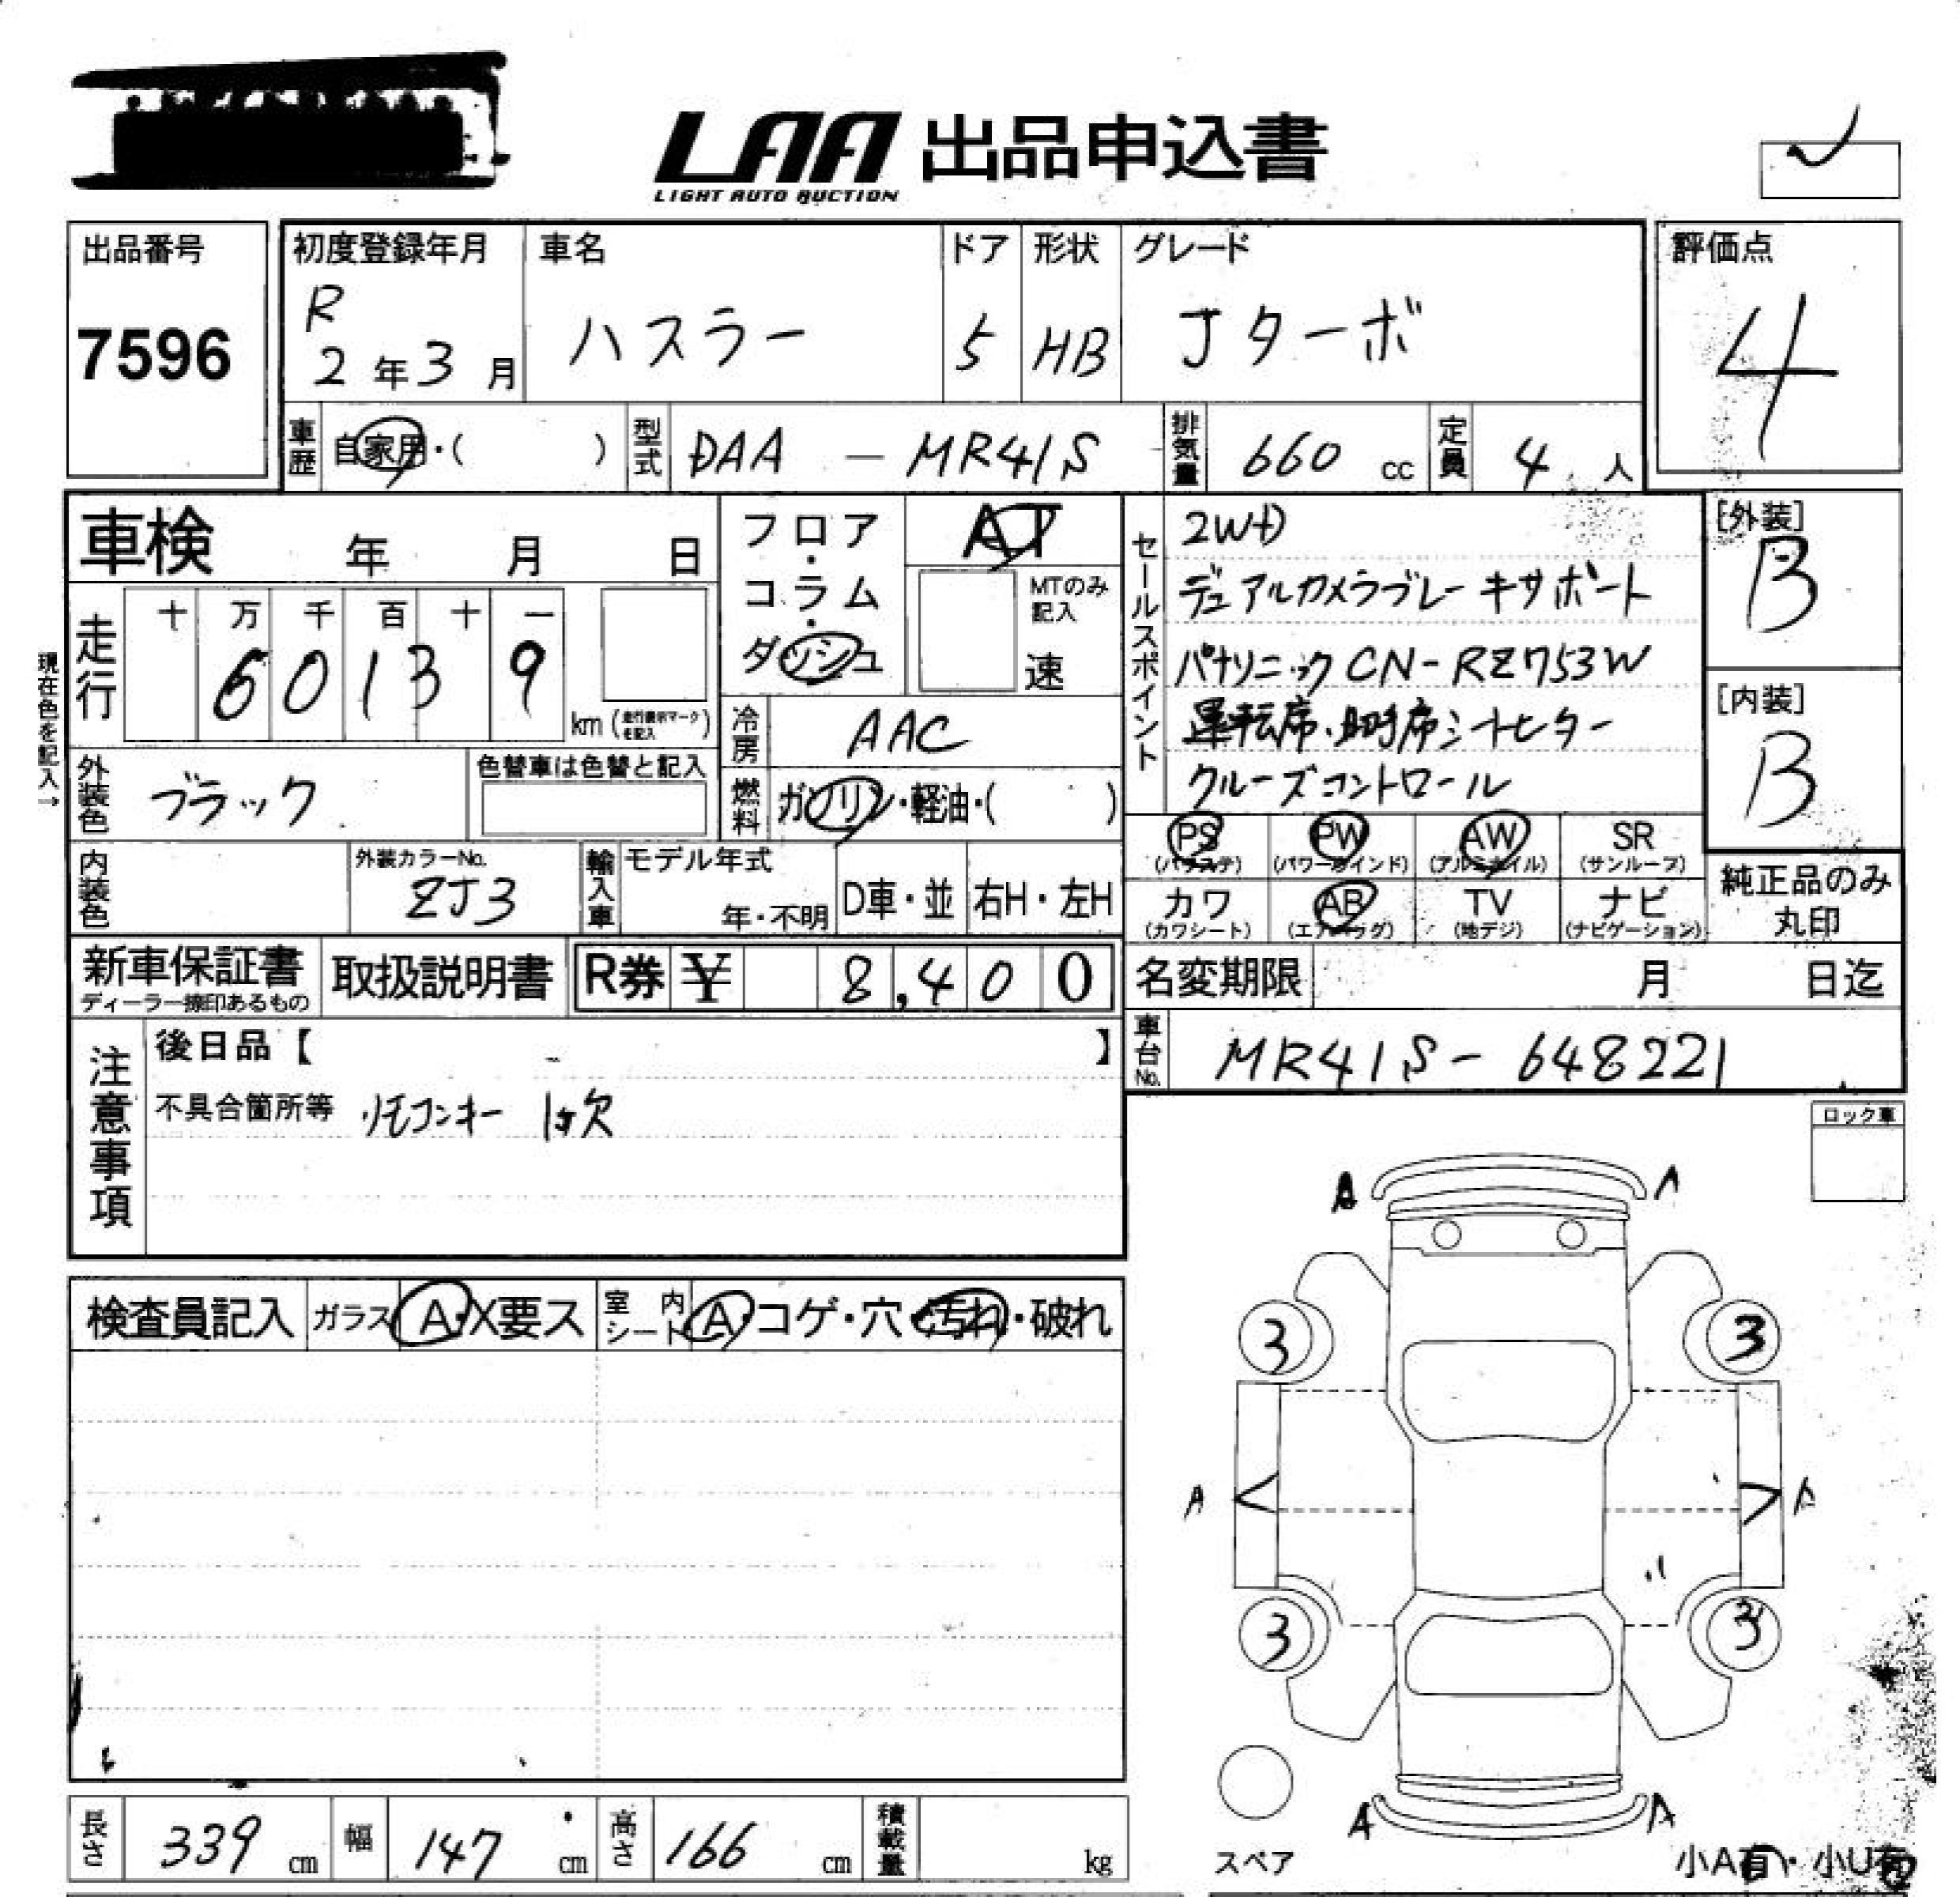 LAA 出品申込書
LIGHT AUTO AUCTION
出品番号
7596
初度登録年月
R
2年3月
車名
ハスラー
ドア
5
形状
HB
グレード
Jターボ
評価点
4
車歴
自家用・( )
型式
DAA - MR41S
排気量
660 cc
定員
4 人
車検 年 月 日
走行
十 万 千 百 十 一
6 0 1 3 9
km (走行表示マークを記入)
現在色を記入→
外装色
ブラック
色替車は色替と記入
内装色
外装カラーNo.
ZJ3
輸入車
モデル年式
年・不明
D車・並
右H・左H
フロア
・
コラム
・
ダッシュ
AT
MTのみ記入
速
冷房
AAC
燃料
ガソリン・軽油・( )
セールスポイント
2WD
デュアルカメラブレーキサポート
パナソニック CN-RZ753W
運転席・助手席シートヒーター
クルーズコントロール
[外装]
B
[内装]
B
PS
(パワステ)
PW
(パワーウインド)
AW
(アルミホイル)
SR
(サンルーフ)
カワ
(カワシート)
AB
(エアバッグ)
TV
(地デジ)
ナビ
(ナビゲーション)
純正品のみ
丸印
新車保証書
ディーラー捺印あるもの
取扱説明書
R券 ¥ 8,400
名変期限 月 日迄
車台No.
MR41S-648221
注意事項
後日品【 】
不具合箇所等 リモコンキー 1ヶ欠
ロック車
検査員記入
ガラス A・X要ス
室内シート A・コゲ・穴・汚れ・破れ
A A
3 3
A A
3 3
A A
スペア
小A有・小U有
長さ 339 cm
幅 147 cm
高さ 166 cm
積載量 kg